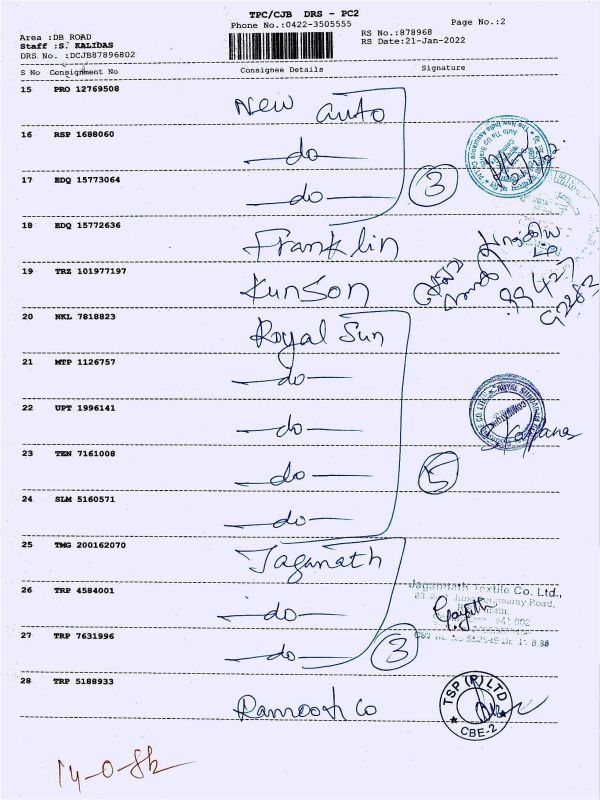 TPC/CJB DRS - PC2
Phone No.:0422-3505555
Page No.:2
Area :DB ROAD
Staff :S. KALIDAS
DRS No. :DCJB87896802
RS No.:878968
RS Date:21-Jan-2022
S No Consignment No Consignee Details Signature
15 PRO 12769508 New auto
16 RSP 1688060 —do—
17 EDQ 15773064 —do— 3
18 EDQ 15772636 Franklin
19 TRZ 101977197 Kunson
20 NKL 7818823 Royal Sun
21 MTP 1126757 —do—
22 UPT 1996141 —do—
23 TEN 7161008 —do— 5
24 SLM 5160571 —do—
25 TMG 200162070 Jaganath
Jagannath Textile Co. Ltd.,
26 TRP 4584001 —do—
27 TRP 7631996 —do— 3
28 TRP 5188933 Ramoosh Co
TSP (P) LTD
CBE-2